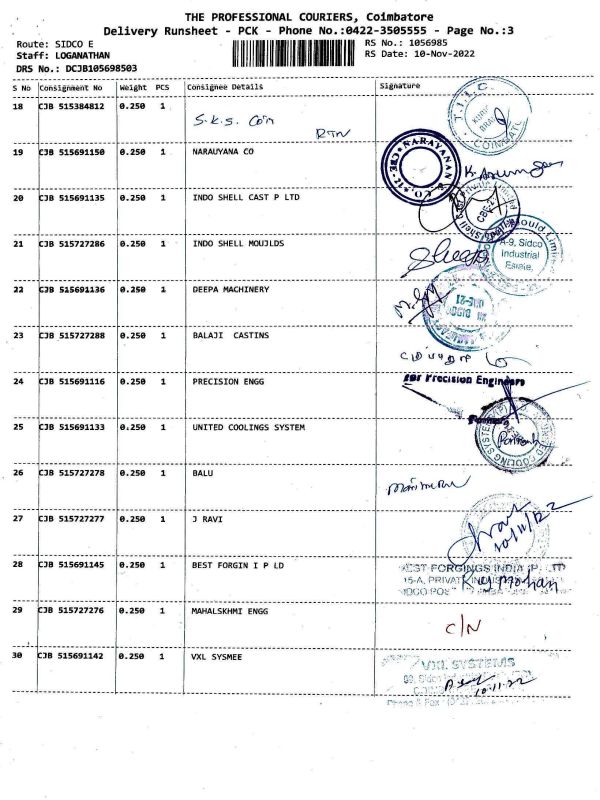 THE PROFESSIONAL COURIERS, Coimbatore
Delivery Runsheet - PCK - Phone No.:0422-3505555 - Page No.:3
Route: SIDCO E RS No.: 1056985
Staff: LOGANATHAN RS Date: 10-Nov-2022
DRS No.: DCJB105698503
S No Consignment No Weight PCS Consignee Details Signature
18 CJB 515384812 0.250 1
S.K.S. Coim RTN
T.I.L.C.
COIMBATE
19 CJB 515691150 0.250 1 NARAUYANA CO
NARAYANAN & CO.
20 CJB 515691135 0.250 1 INDO SHELL CAST P LTD
21 CJB 515727286 0.250 1 INDO SHELL MOUJLDS
Mould Limited
A-9, Sidco
Industrial
Estate,
22 CJB 515691136 0.250 1 DEEPA MACHINERY
23 CJB 515727288 0.250 1 BALAJI CASTINS
24 CJB 515691116 0.250 1 PRECISION ENGG
for Precision Engineers
25 CJB 515691133 0.250 1 UNITED COOLINGS SYSTEM
UNITED COOLING SYSTEM
26 CJB 515727278 0.250 1 BALU
27 CJB 515727277 0.250 1 J RAVI
10/11/22
28 CJB 515691145 0.250 1 BEST FORGIN I P LD
BEST FORGINGS INDIA (P) LTD
15-A, PRIVATE
Raj mohan
29 CJB 515727276 0.250 1 MAHALSKHMI ENGG
C/N
30 CJB 515691142 0.250 1 VXL SYSMEE
VXL SYSTEMS
10.11.22